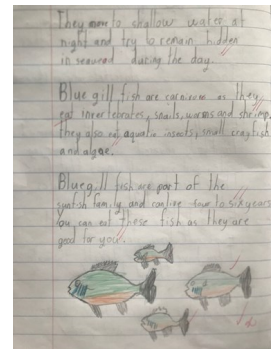 They come to shallow water at
night and try to remain hidden
in seaweed during the day.
Bluegill fish are carnivore as they
eat invertebrates, snails, worms and shrimp,
they also eat aquatic insects, small crayfish
and algae.
Bluegill fish are part of the
sunfish family and can live four to six years
You can eat these fish as they are
good for you.